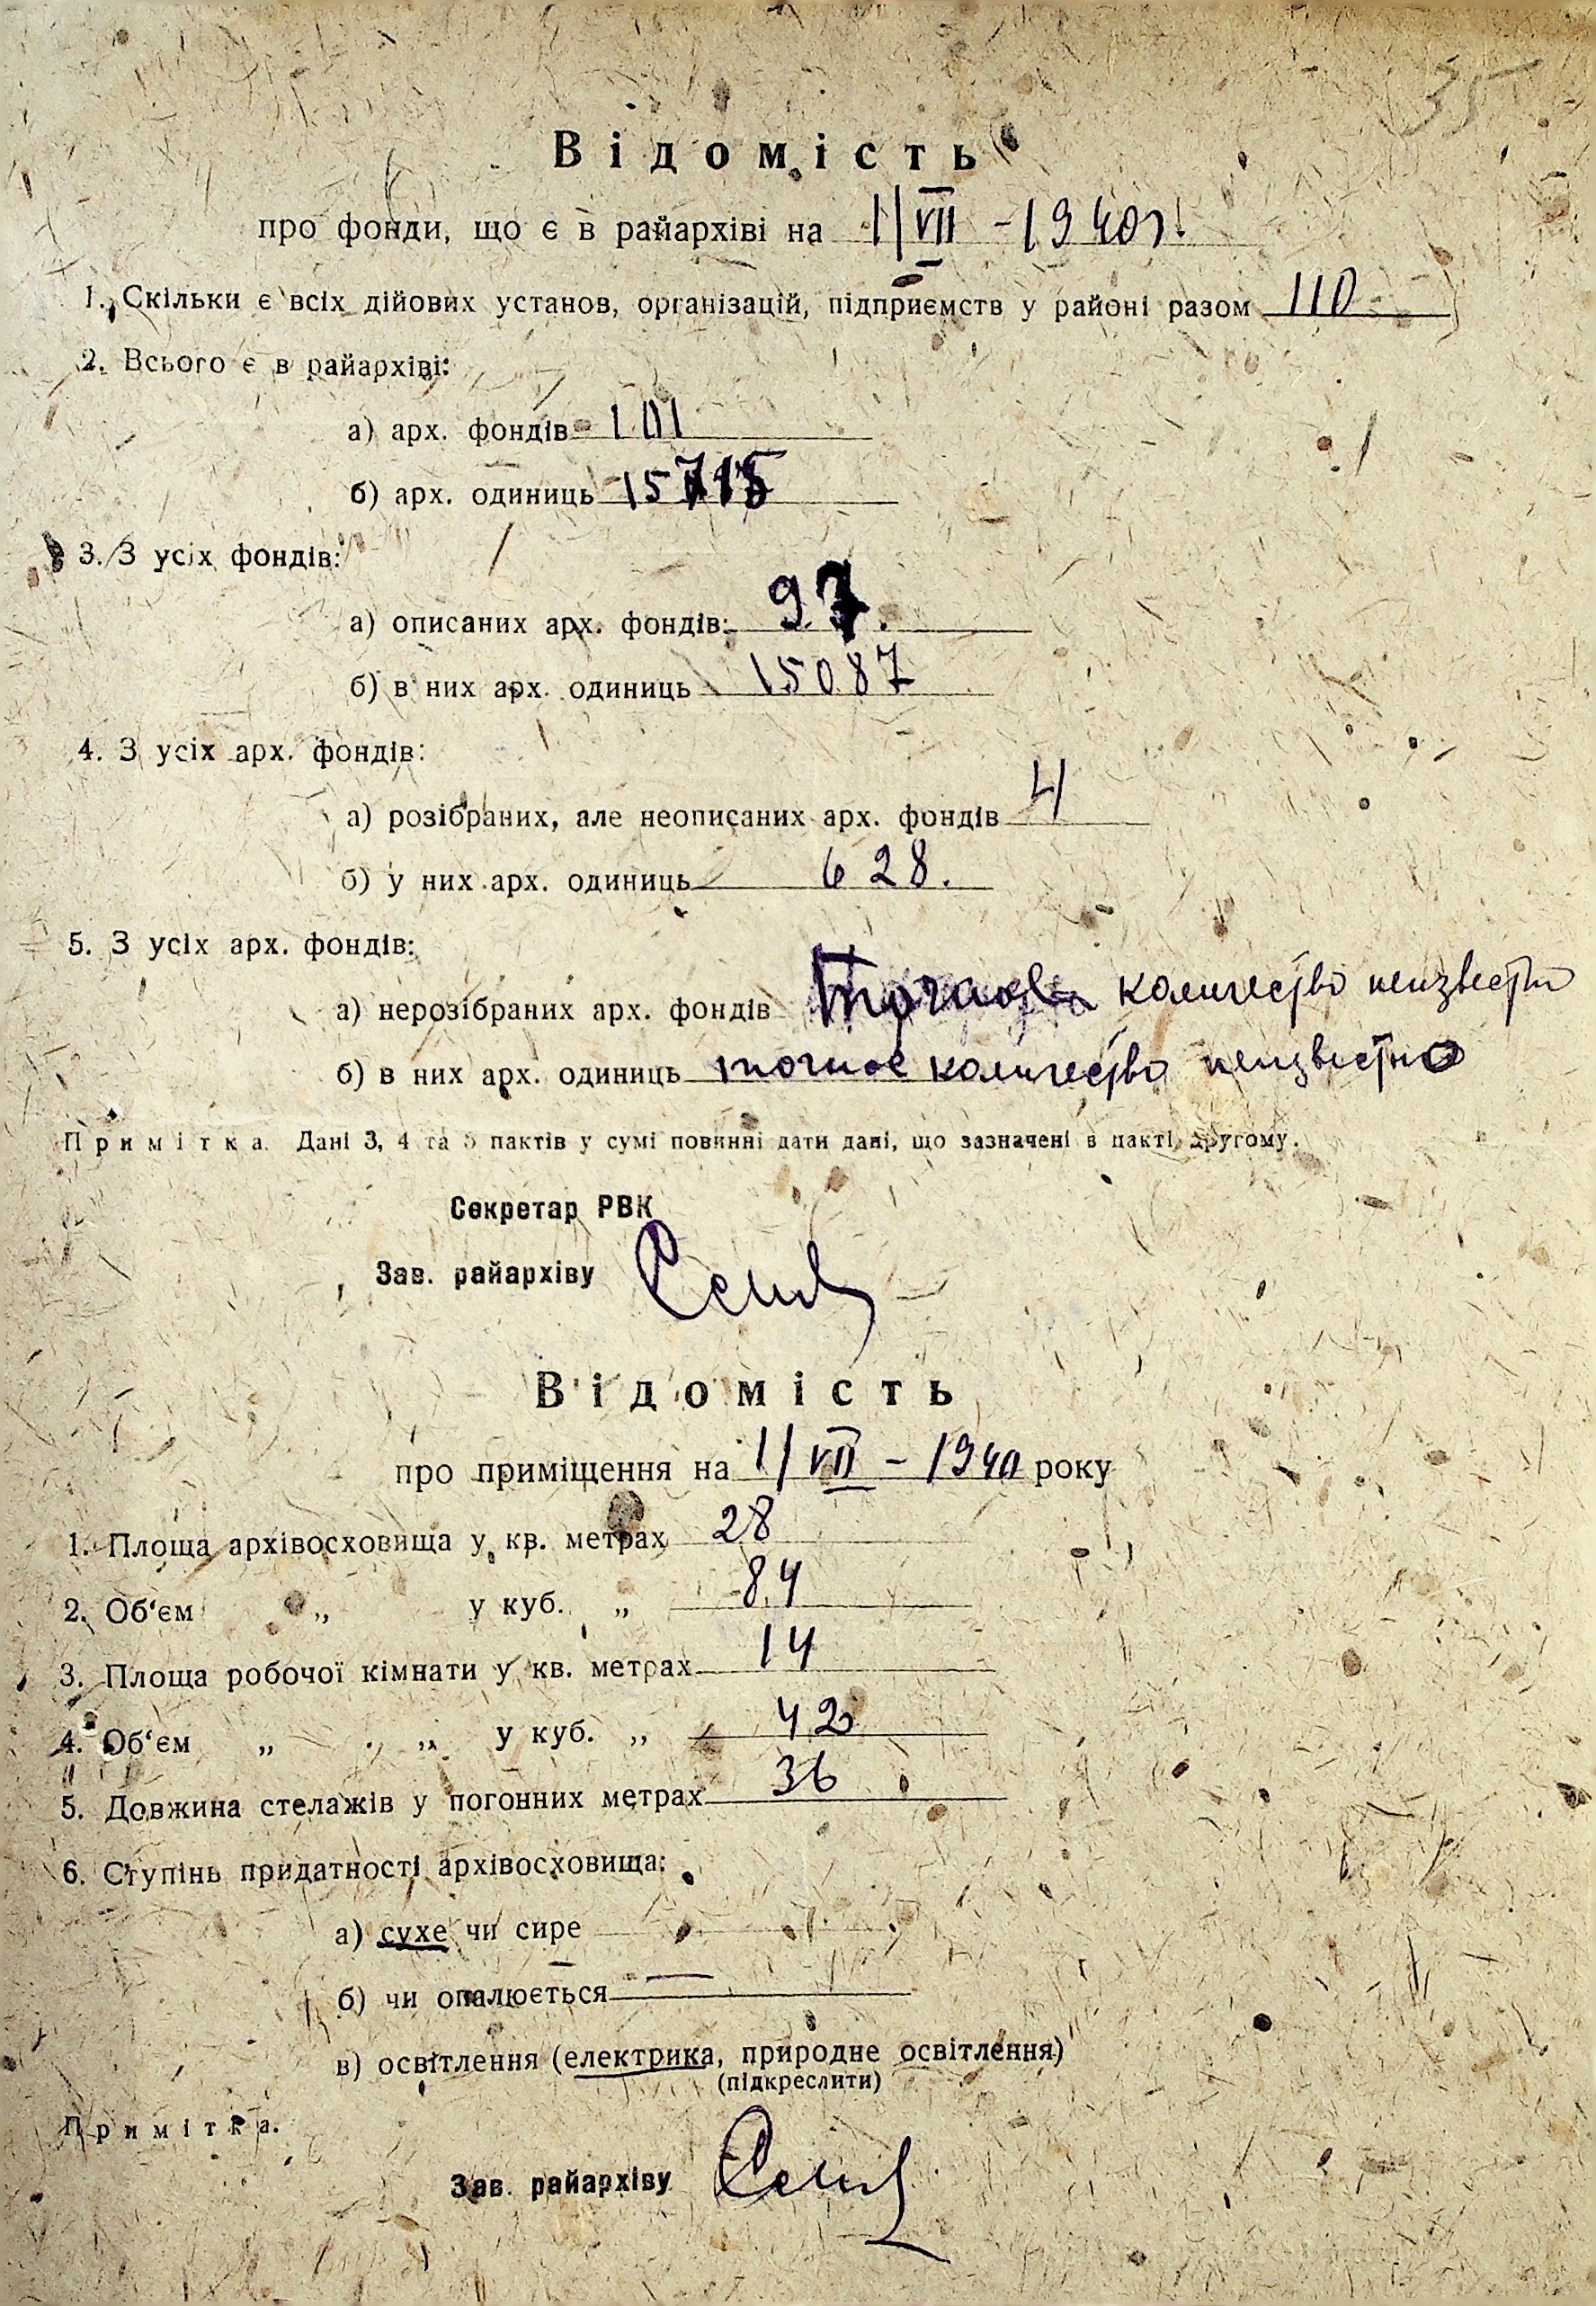 35
Відомість
про фонди, що є в райархіві на 1/VII - 1940 г.
1. Скільки є всіх дійових установ, організацій, підприємств у районі разом 110
2. Всього є в райархіві:
а) арх. фондів 101
б) арх. одиниць 15715
3. З усіх фондів:
а) описаних арх. фондів: 97.
б) в них арх. одиниць 15087
4. З усіх арх. фондів:
а) розібраних, але неописаних арх. фондів 4
б) у них арх. одиниць 628.
5. З усіх арх. фондів:
а) нерозібраних арх. фондів точное количество неизвестно
б) в них арх. одиниць точное количество неизвестно
Примітка. Дані 3, 4 та 5 пактів у сумі повинні дати дані, що зазначені в пакті другому.
Секретар РВК
Зав. райархіву
Відомість
про приміщення на 1/VII - 1940 року
1. Площа архівосховища у кв. метрах 28
2. Об'єм „ у куб. „ 84
3. Площа робочої кімнати у кв. метрах 14
4. Об'єм „ „ у куб. „ 42
5. Довжина стелажів у погонних метрах 36
6. Ступінь придатності архівосховища:
а) сухе чи сире
б) чи опалюється —
в) освітлення (електрика, природне освітлення)
(підкреслити)
Примітка.
Зав. райархіву